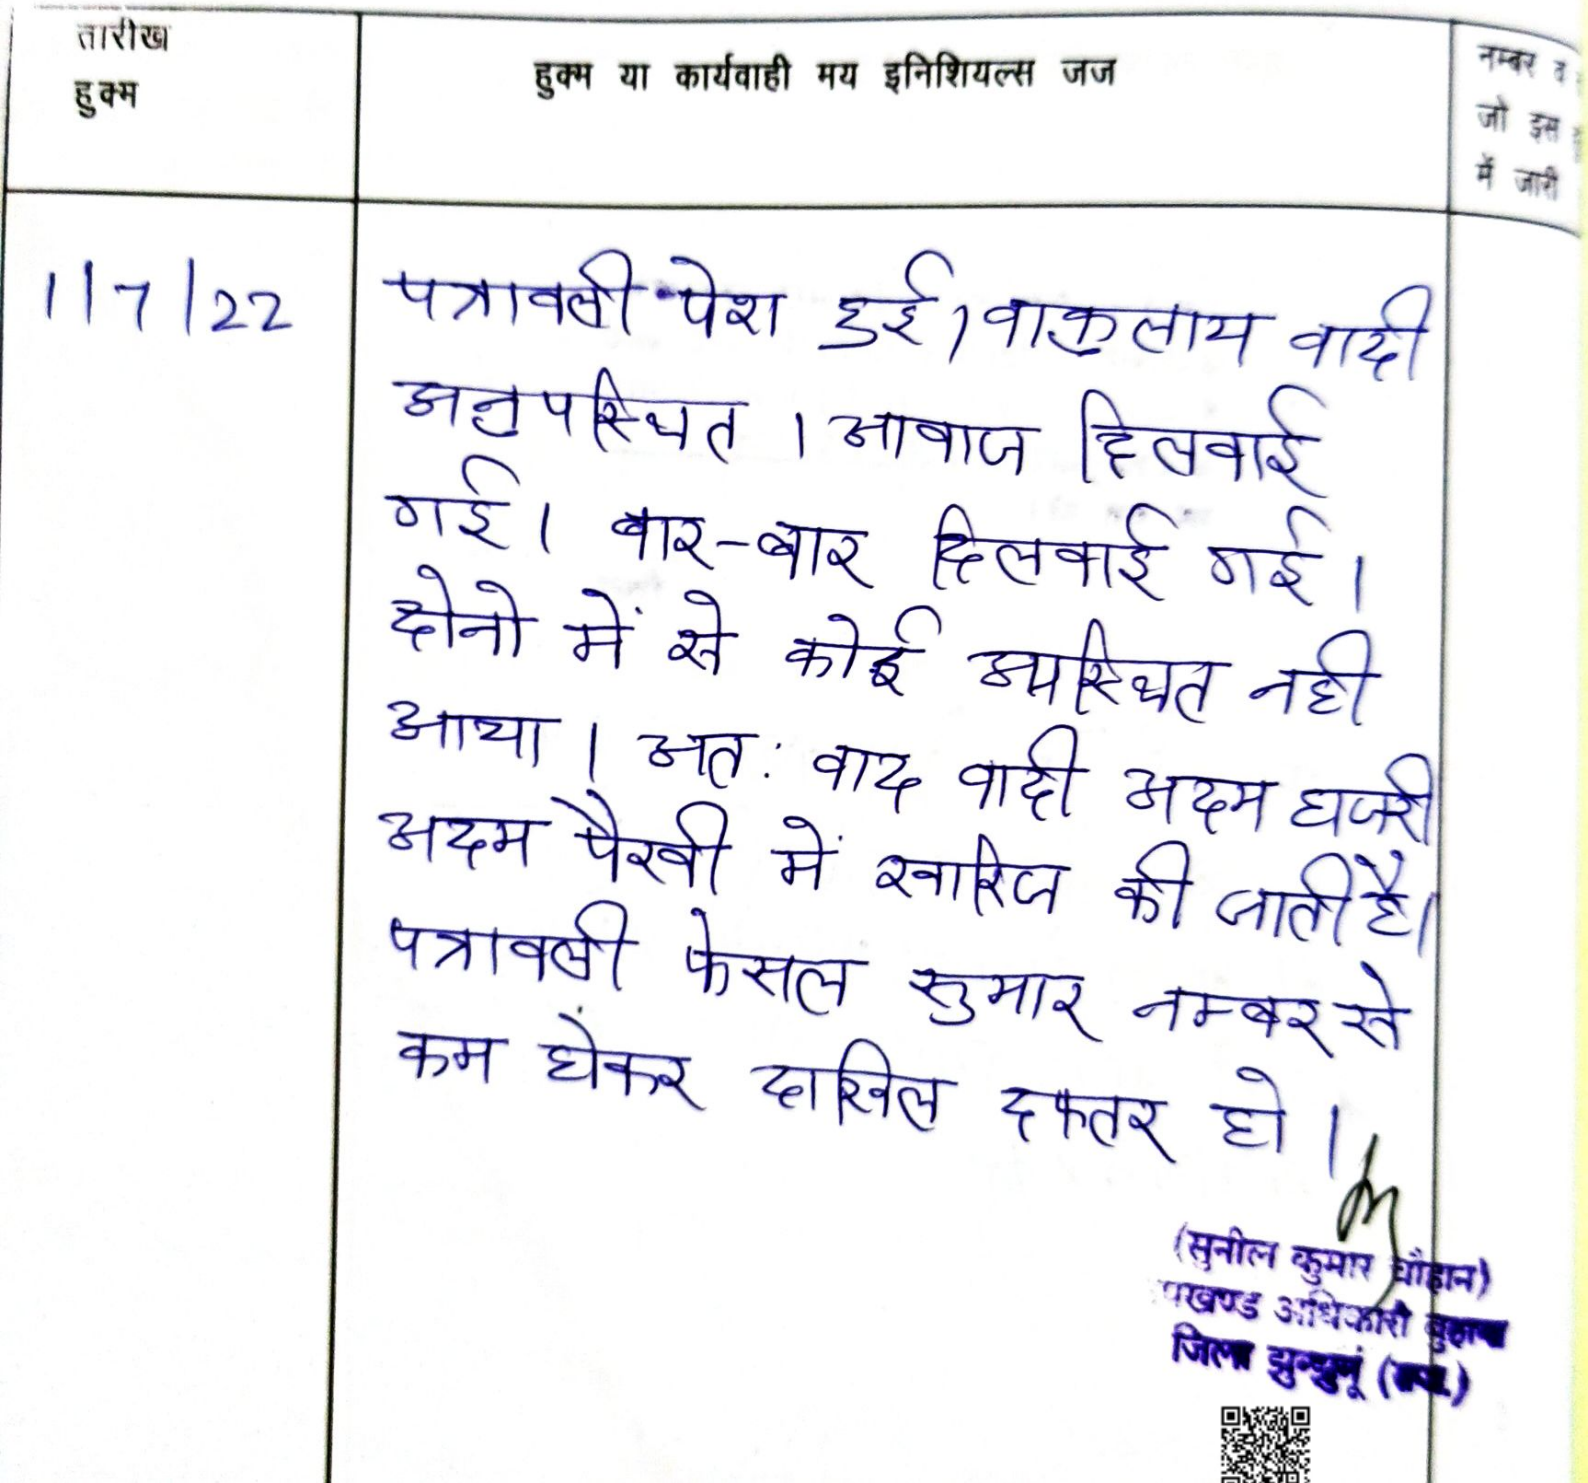 तारीख
हुक्म
हुक्म या कार्यवाही मय इनिशियल्स जज
नम्बर व
जो इस
में जारी
1/7/22
पत्रावली पेश हुई। वाकुलाय वादी
अनुपस्थित । आवाज दिलवाई
गई। बार-बार दिलवाई गई।
दोनो में से कोई उपस्थित नही
आया । अत: वाद वादी अदम हाजरी
अदम पैरवी में खारिज की जाती है।
पत्रावली फेसल सुमार नम्बर से
कम होकर दाखिल दफ्तर हो ।
(सुनील कुमार चौहान)
पखण्ड अधिकारी
जिला झुन्झुनूं